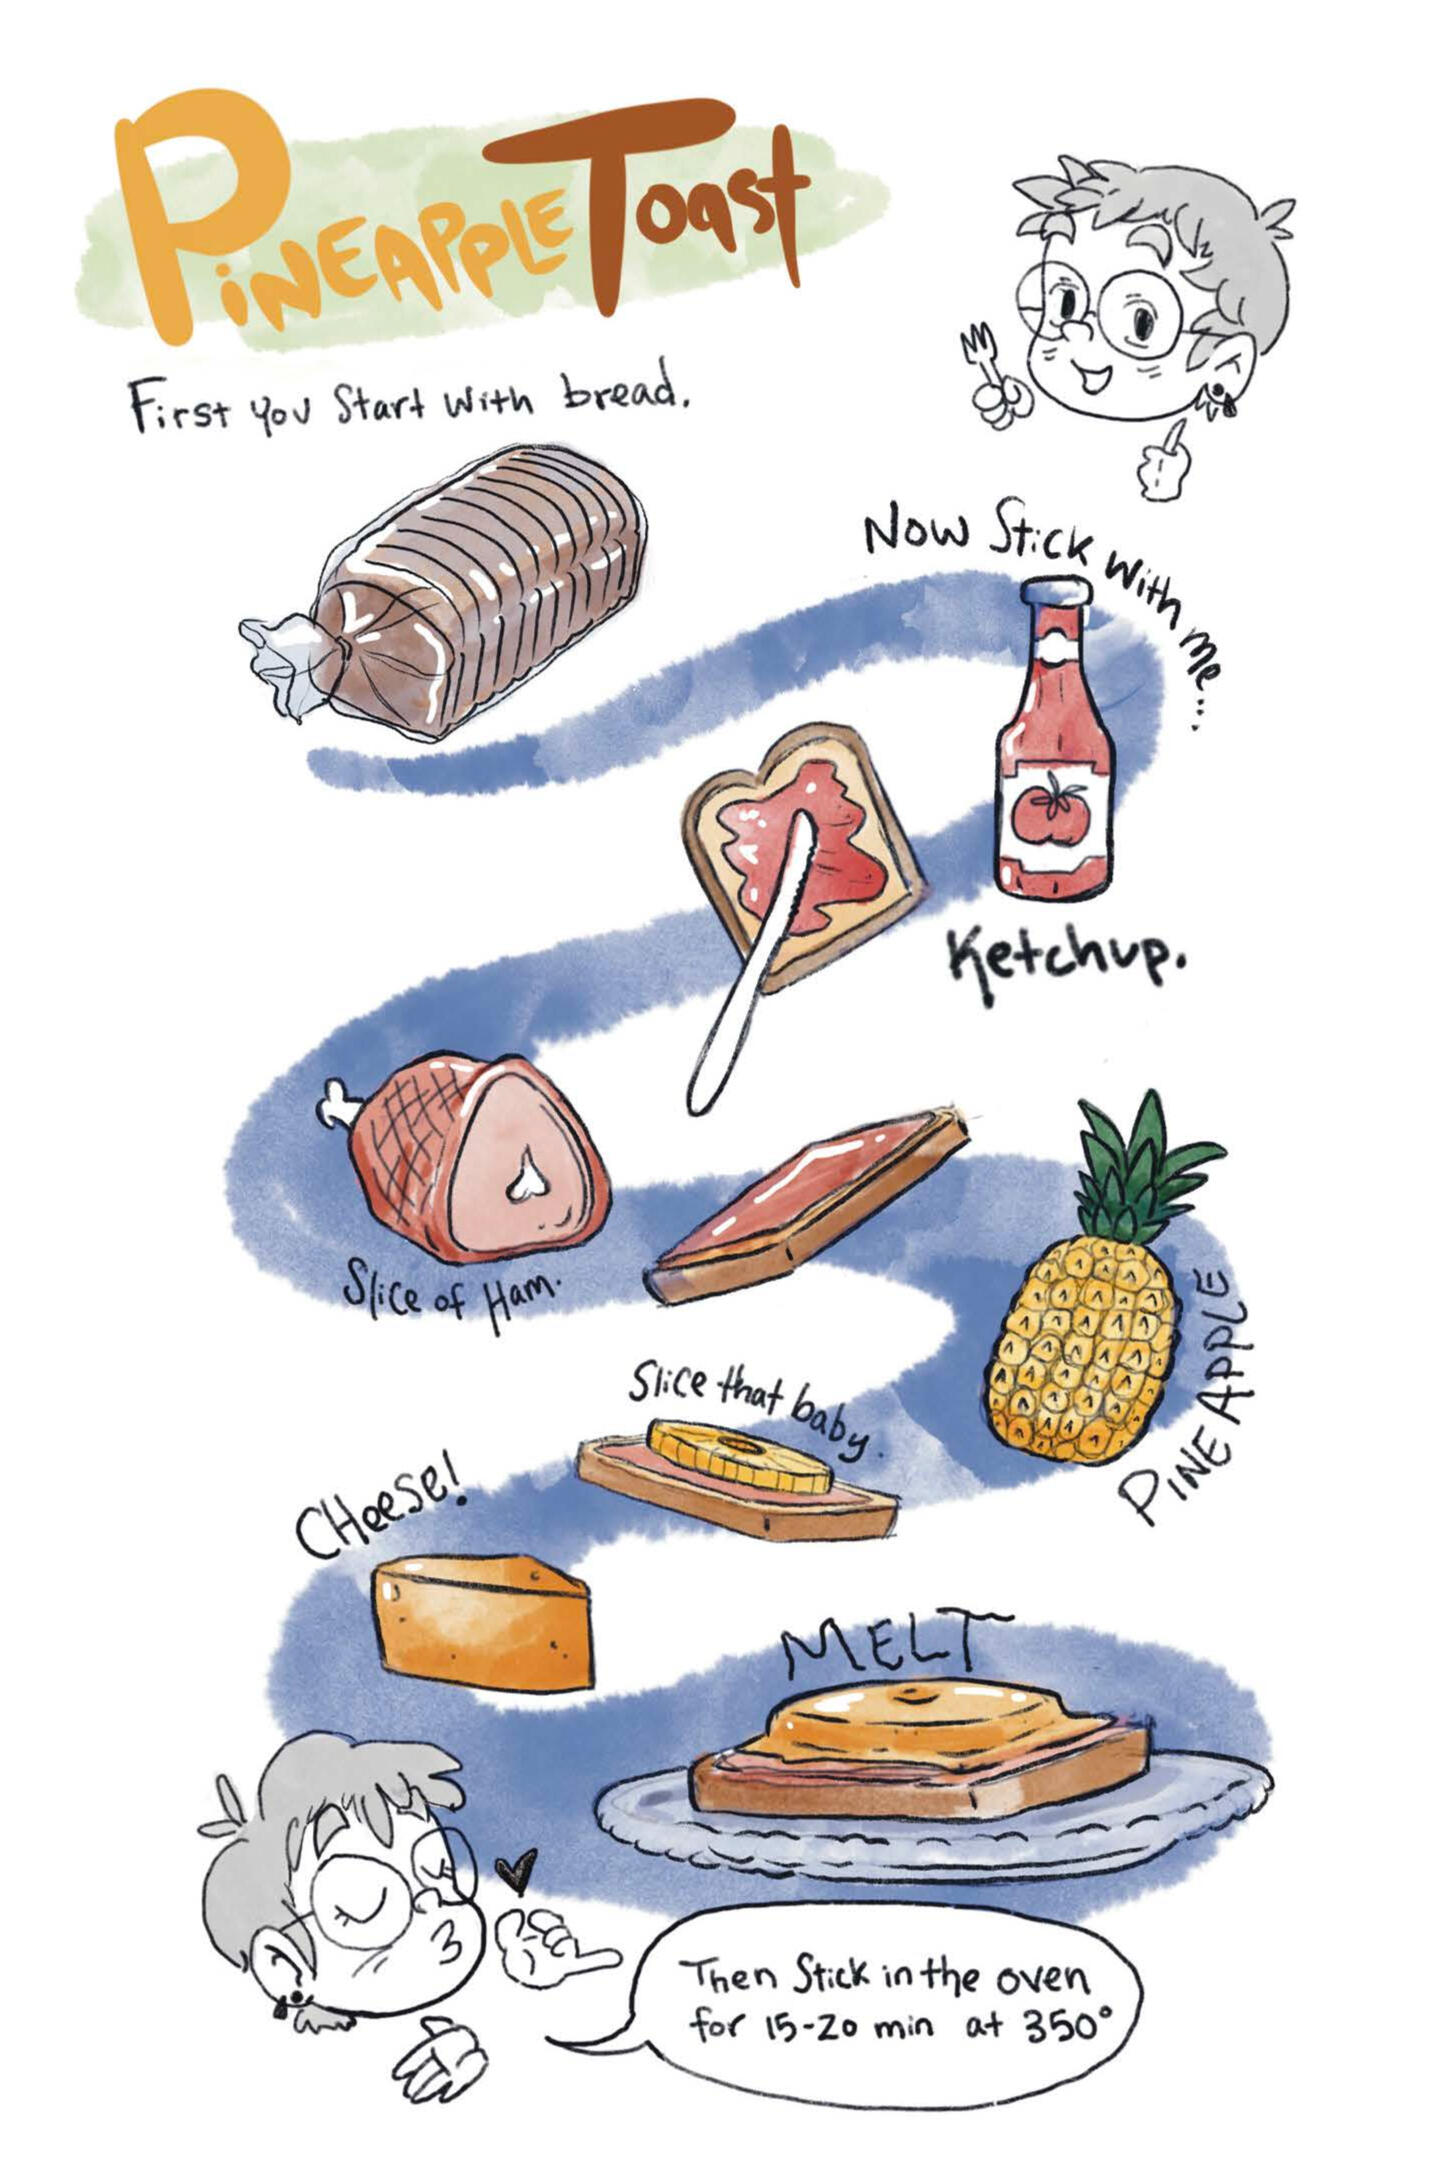 PiNEAPPLE Toast
First you Start with bread.
Now Stick with me...
Ketchup.
Slice of Ham.
PINEAPPLE
Slice that baby.
CHeese!
MELT
Then Stick in the oven
for 15-20 min at 350°